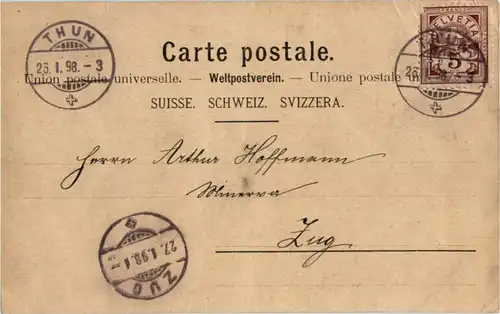 THUN
26.I.98.-3
FRANCO
HELVETIA
5
Carte postale.
Union postale universelle. — Weltpostverein. — Unione postale
SUISSE. SCHWEIZ. SVIZZERA.
Herrn Arthur Hoffmann
Minerva
Zug
ZUG
27.I.98.